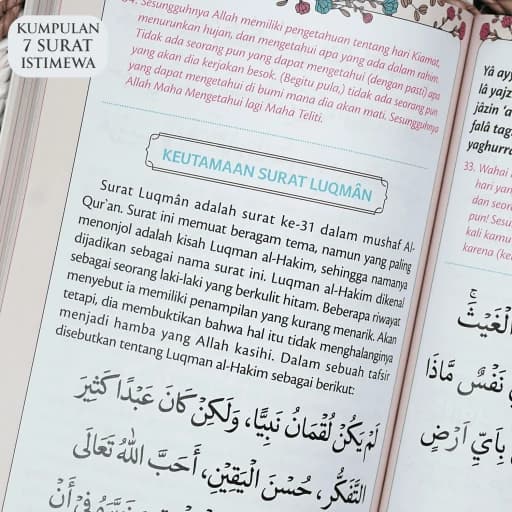 KUMPULAN
7 SURAT
ISTIMEWA
34. Sesungguhnya Allah memiliki pengetahuan tentang hari Kiamat,
menurunkan hujan, dan mengetahui apa yang ada dalam rahim.
Tidak ada seorang pun yang dapat mengetahui (dengan pasti) apa
yang akan dia kerjakan besok. (Begitu pula,) tidak ada seorang pun
yang dapat mengetahui di bumi mana dia akan mati. Sesungguhnya
Allah Maha Mengetahui lagi Maha Teliti.
KEUTAMAAN SURAT LUQMÂN
Surat Luqmân adalah surat ke-31 dalam mushaf Al-
Qur`an. Surat ini memuat beragam tema, namun yang paling
menonjol adalah kisah Luqman al-Hakim, sehingga namanya
dijadikan sebagai nama surat ini. Luqman al-Hakim dikenal
sebagai seorang laki-laki yang berkulit hitam. Beberapa riwayat
menyebut ia memiliki penampilan yang kurang menarik. Akan
tetapi, dia membuktikan bahwa hal itu tidak menghalanginya
menjadi hamba yang Allah kasihi. Dalam sebuah tafsir
disebutkan tentang Luqman al-Hakim sebagai berikut:
لَمْ يَكُنْ لُقْمَانُ نَبِيًّا، وَلَكِنْ كَانَ عَبْدًا كَثِيرَ
التَّفَكُّرِ، حُسْنَ الْيَقِينِ، أَحَبَّ اللهُ تَعَالَى
Yâ ayy
lâ yajz
jâzin 'a
falâ tag
yaghurra
33. Wahai
hari yan
dan seor
pun! Sesu
kali kamu
karena (ke
الْغَيْثَۚ
نَفْسٌ مَّاذَا
بِاَيِّ اَرْضٍ